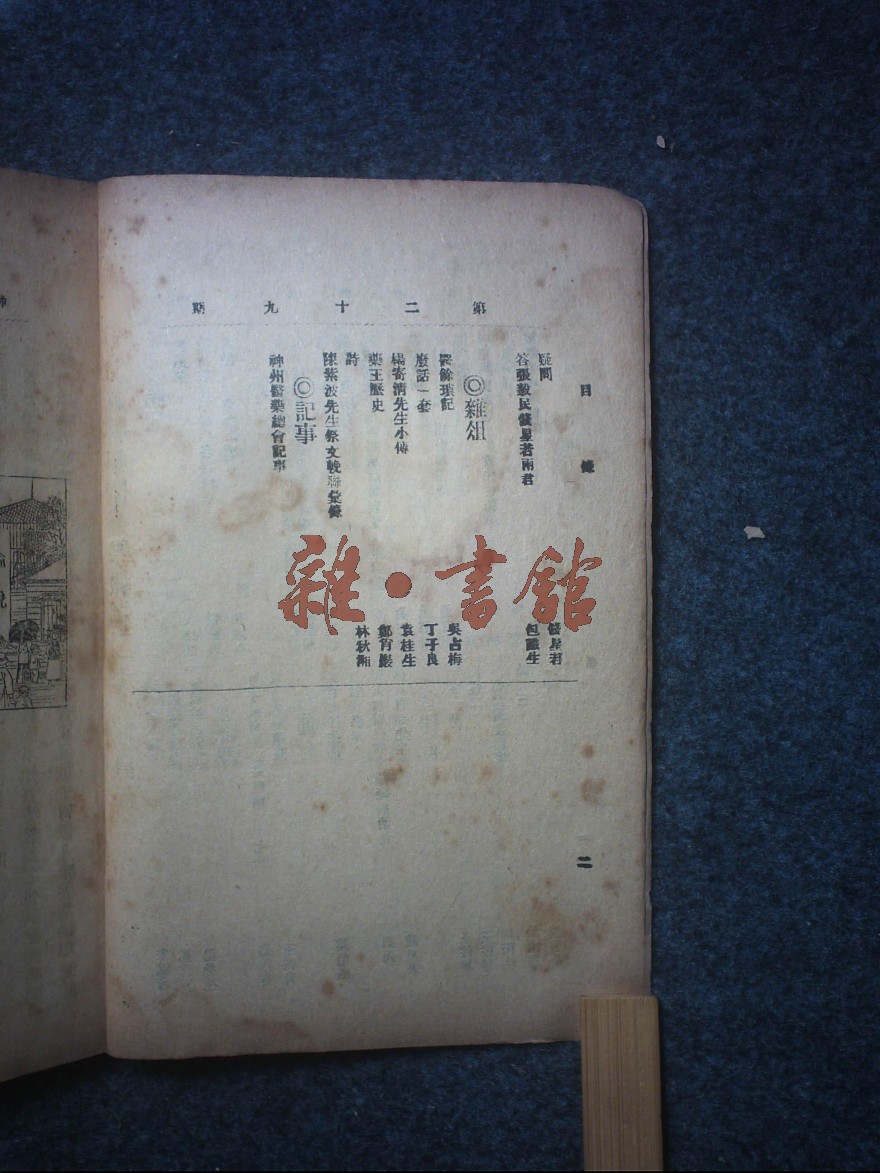 目錄
二
第二十九期
疑問
儀星君
答張毅民儀星若兩君
包識生
◎雜俎
醫餘瑣記
吳占梅
廢話一套
丁子良
楊寄清先生小傳
袁桂生
藥王歷史
鄭肖巖
詩
林狄湘
陳紫波先生祭文輓聯彙錄
◎記事
神州醫藥總會記事
雜·書館